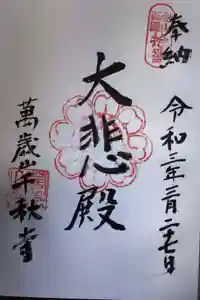 奉納
令和三年三月二七日
大悲殿
萬歳山千秋寺